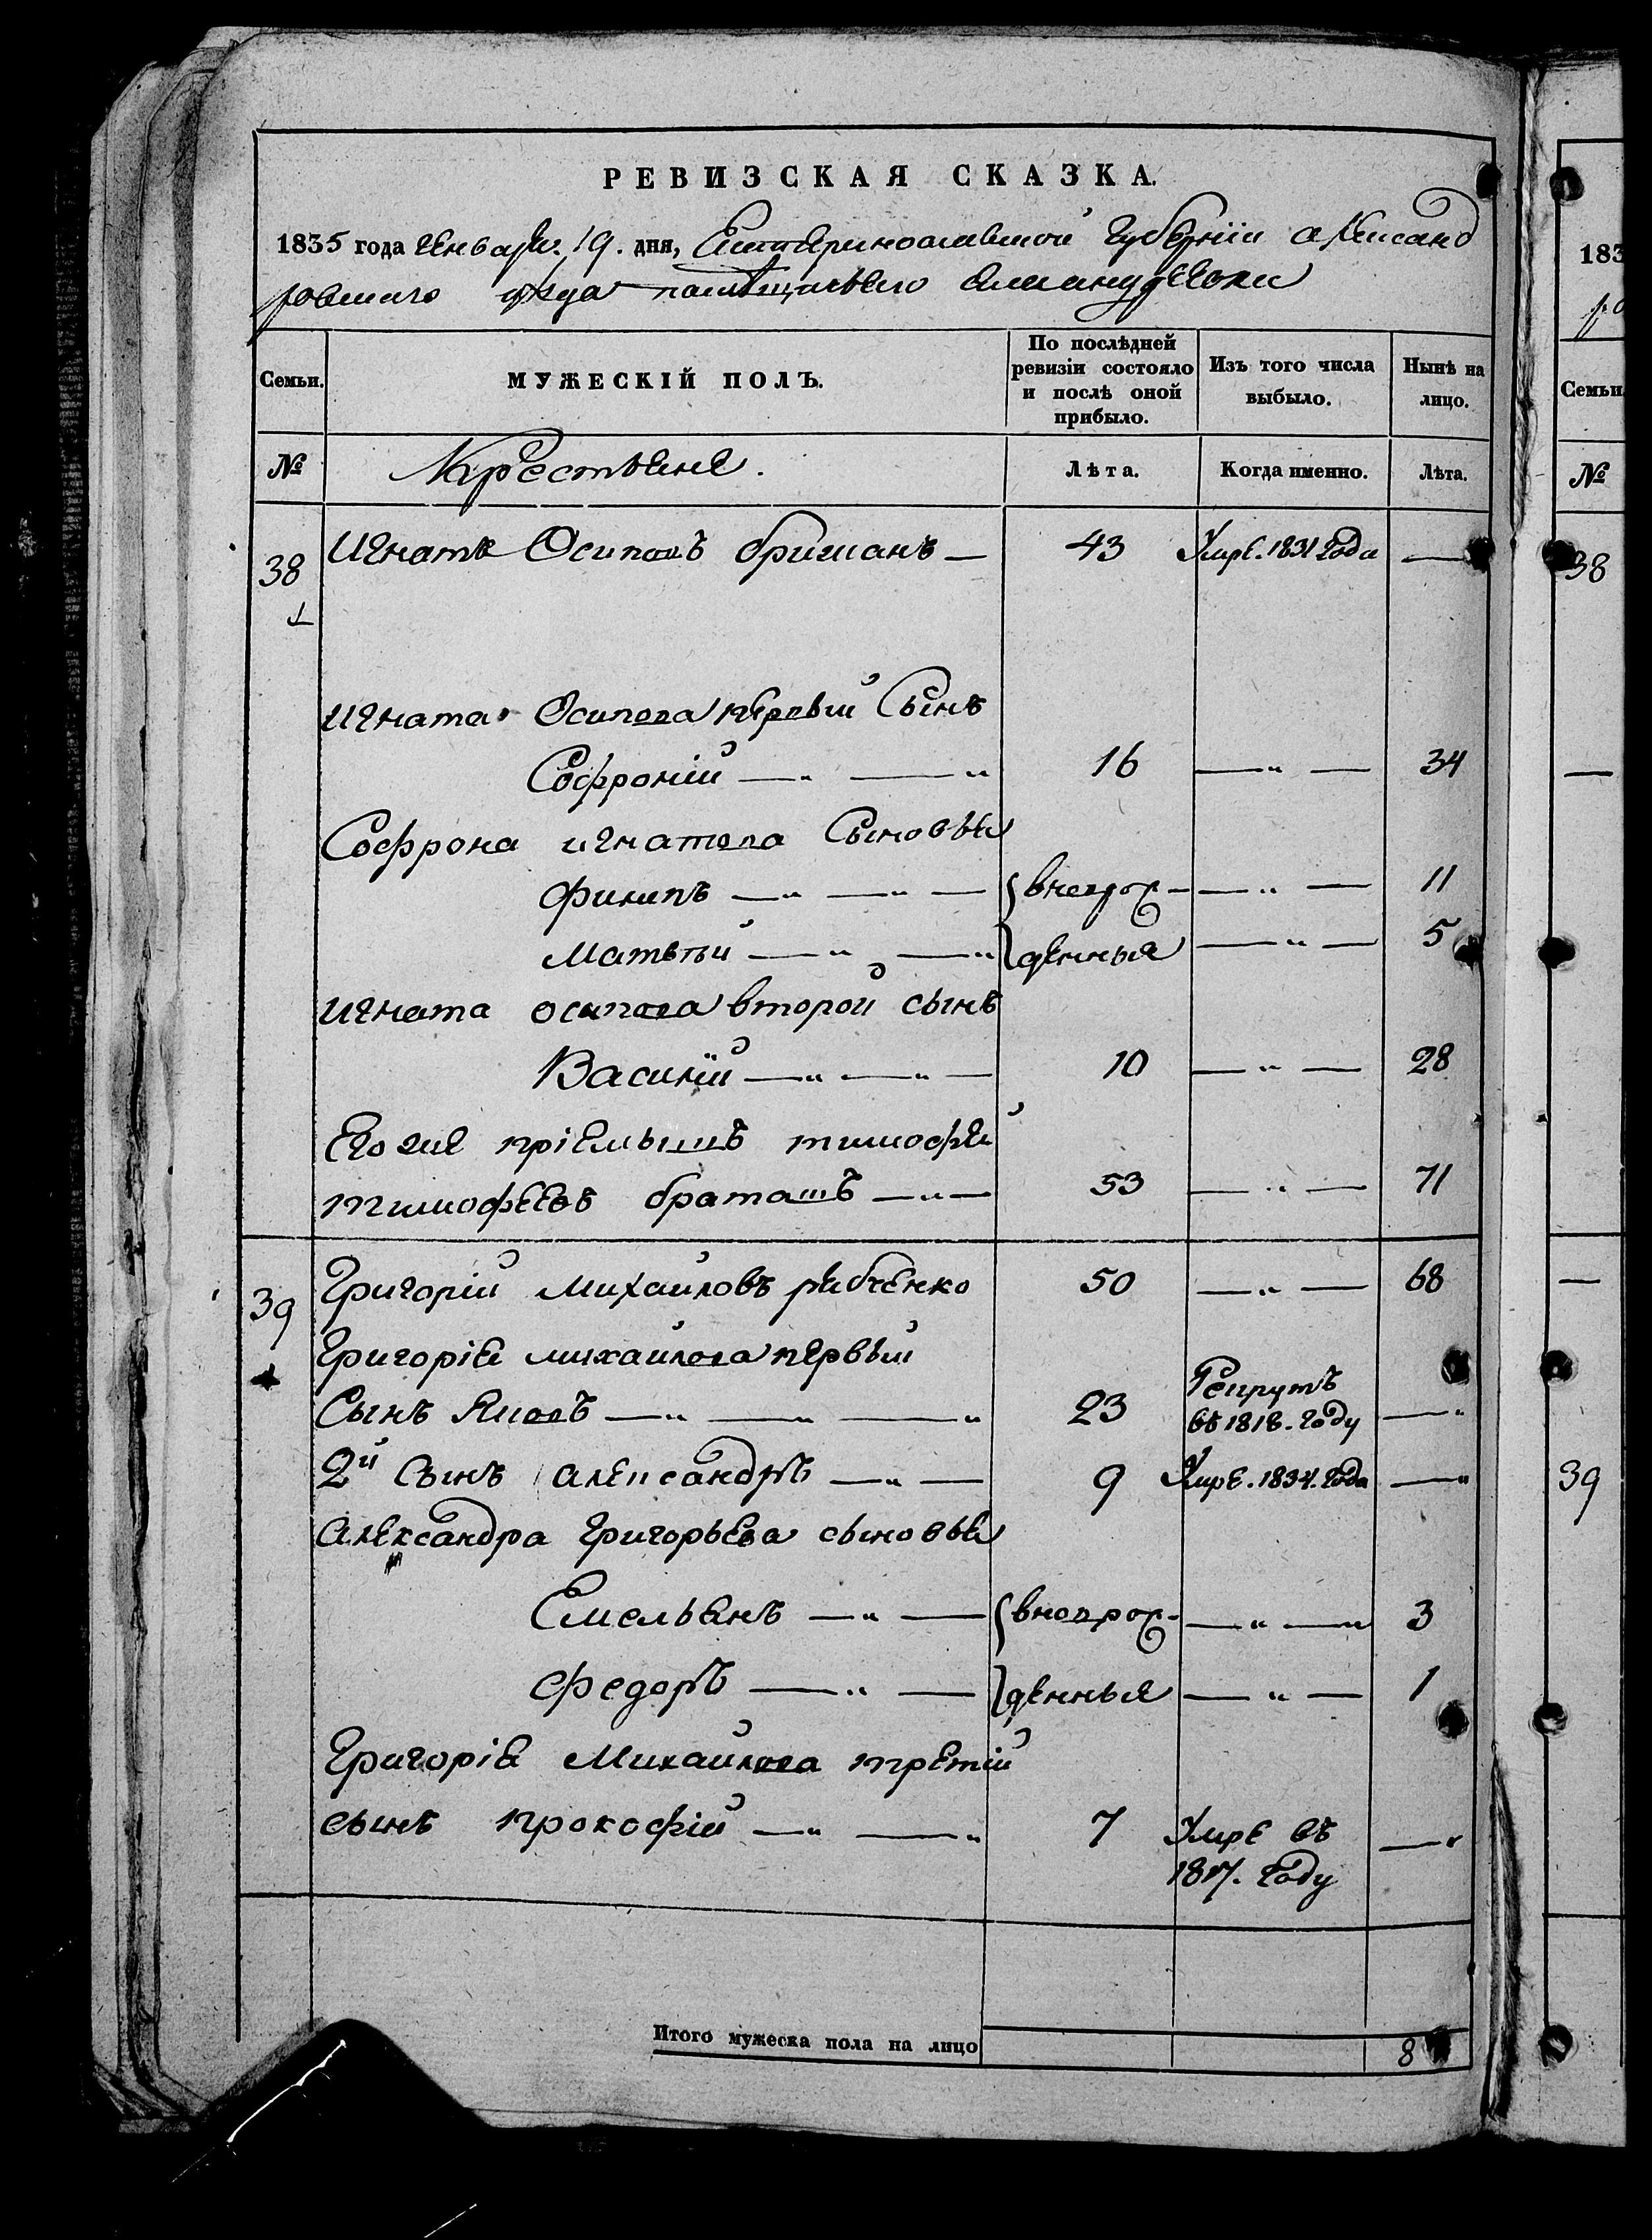 РЕВИЗСКАЯ СКАЗКА.
1835 года Генваря. 19. дня, Екатеринославской Губерніи Александ
ровскаго уѣзда
Семьи. МУЖЕСКІЙ ПОЛЪ. По послѣдней ревизіи состояло и послѣ оной прибыло. Изъ того числа выбыло. Нынѣ на лицо.
№ Крестьяне. Лѣта. Когда именно. Лѣта.
38 Игнатъ Осиповъ 43 Умре. 1831 Года —
Игната Осипова первый Сынъ
Софроній 16 34
Софрона игнатова Сыновья
Филипъ вновърож- 11
Матвѣй денныя 5
Игната осипова второй сынъ
Василій 10 28
Его же пріемышъ тимофей
тимофеевъ браташъ 53 71
39 Григорій Михайловъ рябченко 50 68
Григорія михайлова первый
Сынъ Яковъ 23 Рекрутъ въ 1818. Году
2й Сынъ Александръ 9 Умре. 1834. Года
Александра Григорьева сыновья
Емельянъ вновърож- 3
Федоръ денныя 1
Григорія Михайлова третій
сынъ прокофій 7 Умре въ
1817. Году
Итого мужеска пола на лицо 8
183
Семьи
№
38
39